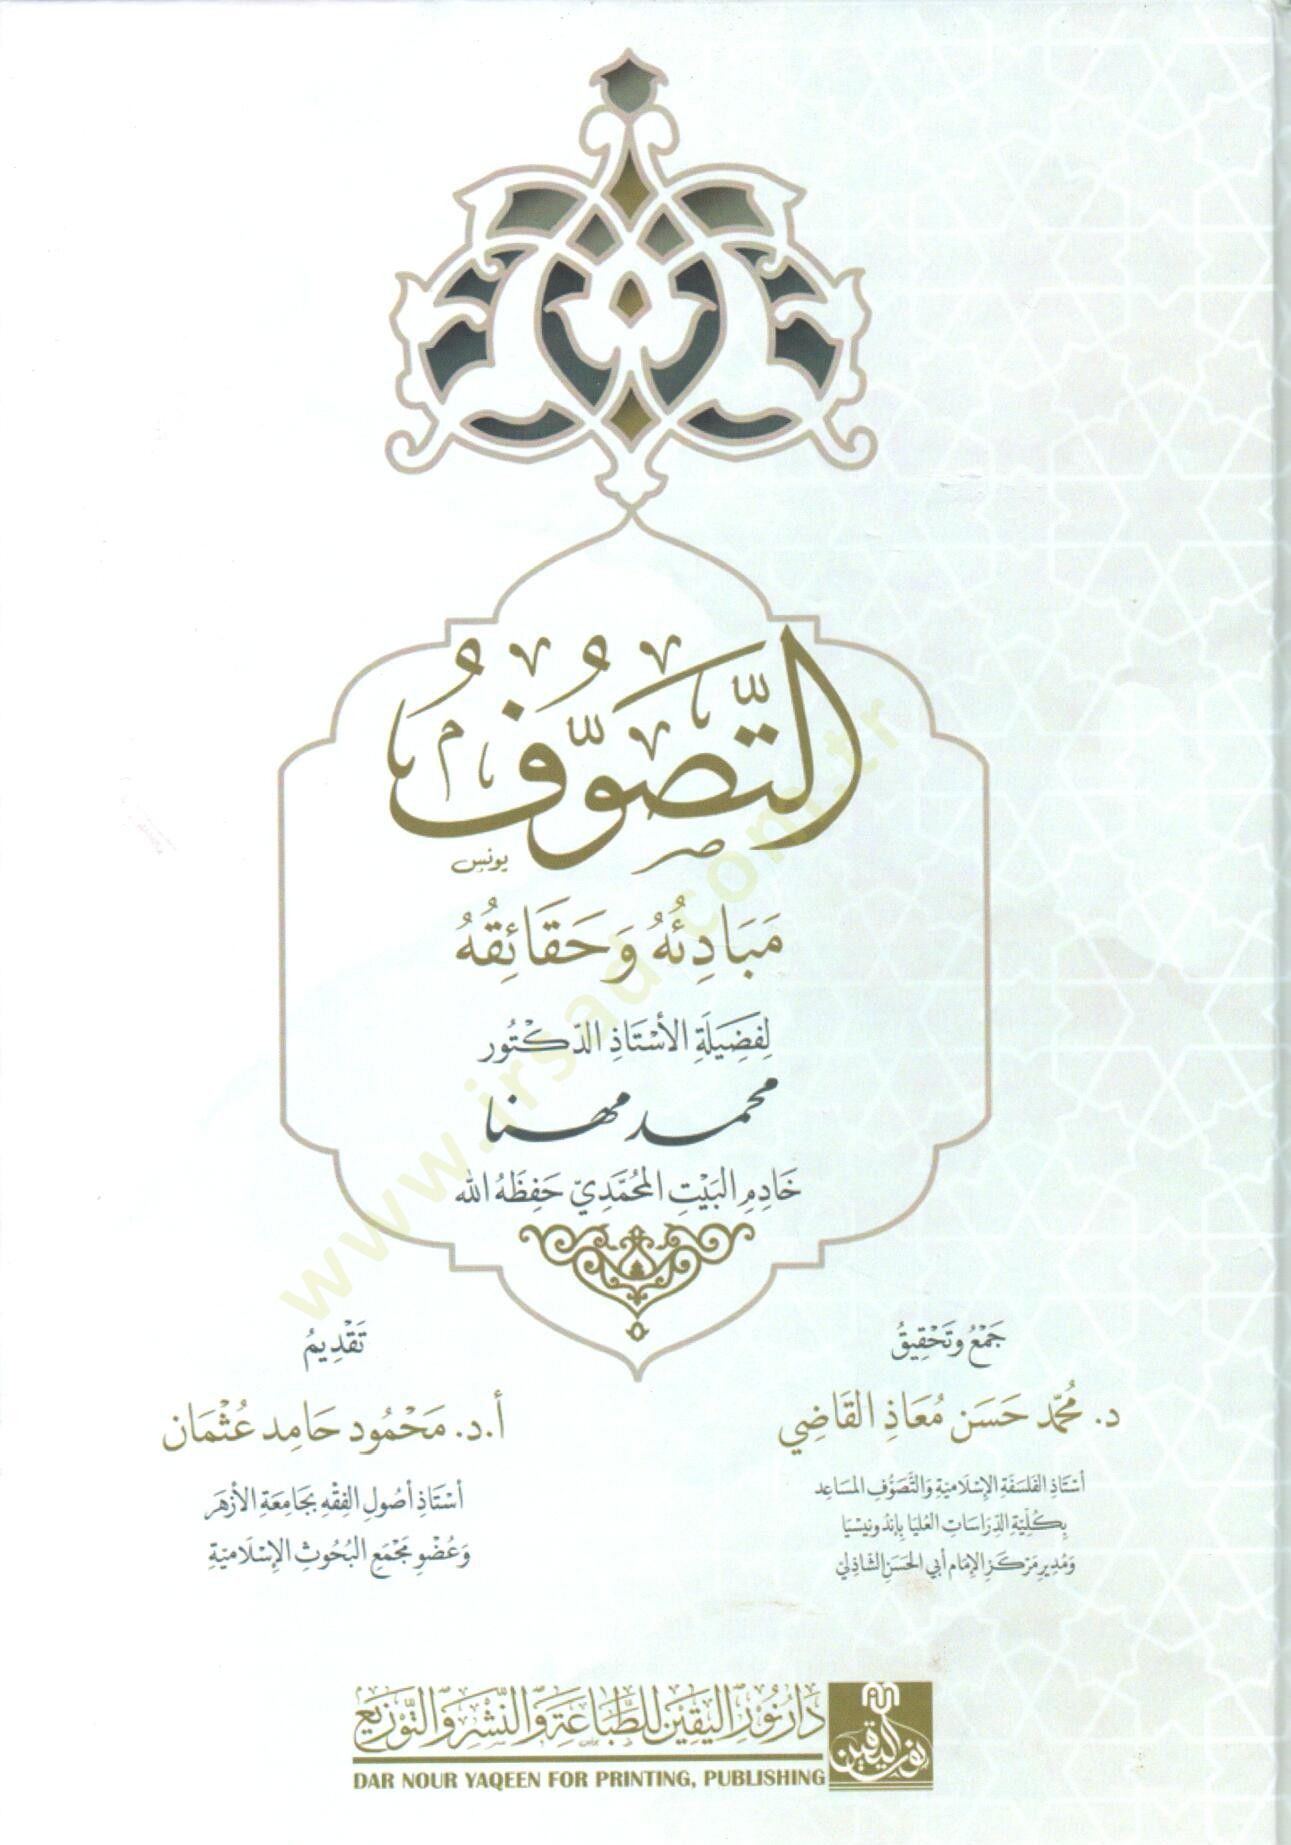 التَّصَوُّفُ
يونس
مَبَادِئُهُ وَحَقَائِقُهُ
لِفَضِيلَةِ الأُسْتَاذِ الدّكْتُور
محمد مهنا
خَادِمِ البَيْتِ المُحَمَّدِيّ حَفِظَهُ الله
جَمْعُ وَتَحْقِيقُ
د. مُحَمَّد حَسَن مُعَاذ القَاضِي
أُسْتَاذِ الفَلسَفَةِ الإِسْلَامِيَّةِ وَالتَّصَوُّفِ المُسَاعِد
بِكُلِّيَّةِ الدِّرَاسَاتِ العُليَا بِإِندُونِيسْيَا
وَمُدِيرِ مَرْكَزِ الإِمَام أَبِي الحَسَنِ الشَّاذِلِيّ
تَقْدِيمُ
أ.د. مَحْمُود حَامِد عُثْمَان
أُسْتَاذِ أُصُولِ الفِقْهِ بِجَامِعَةِ الأَزهَر
وَعُضْوِ مَجْمَعِ البُحُوثِ الإِسْلَامِيَّةِ
دَارُ نُورِ اليَقِينِ لِلطِّبَاعَةِ وَالنَّشْرِ وَالتَّوْزِيعِ
DAR NOUR YAQEEN FOR PRINTING, PUBLISHING
نور اليقين
www.irsad.com.tr